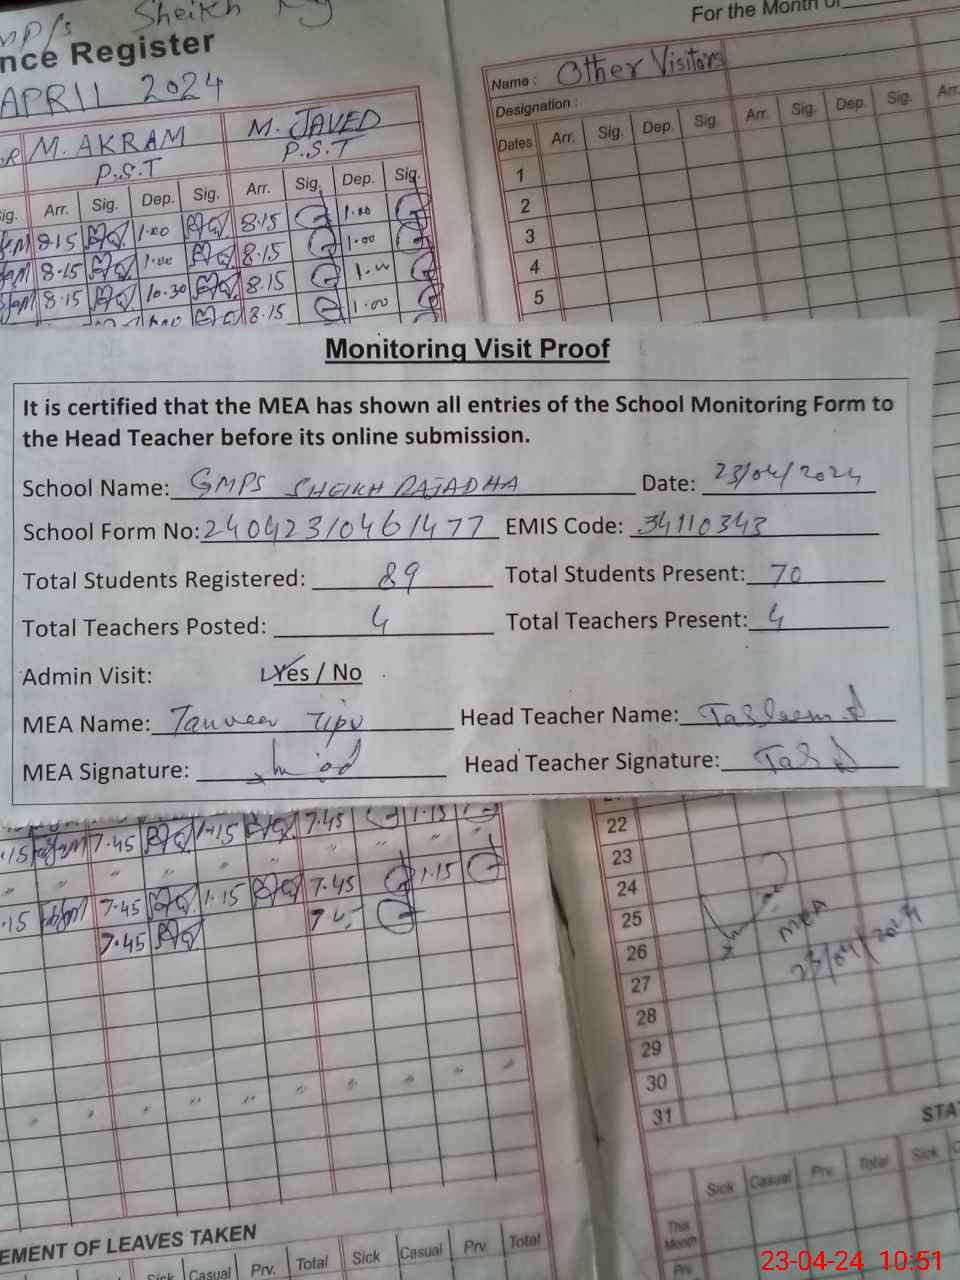 Sheikh
nce Register
APRIL 2024
M. AKRAM M. JAVED
P.S.T P.S.T
Sig. Arr. Sig. Dep. Sig. Arr. Sig. Dep. Sig.
8.15 1.00 8.15 1.00
8.15 1.00 8.15 1.00
8.15 10.30 8.15 1.00
8.15 1.00
For the Month of
Name : Other Visitors
Designation :
Dates Arr. Sig. Dep. Sig. Arr. Sig. Dep. Sig. Arr.
1
2
3
4
5
Monitoring Visit Proof
It is certified that the MEA has shown all entries of the School Monitoring Form to
the Head Teacher before its online submission.
School Name: GMPS SHEIKH RAJADHA Date: 23/04/2024
School Form No: 24042310461477 EMIS Code: 34110343
Total Students Registered: 89 Total Students Present: 70
Total Teachers Posted: 4 Total Teachers Present: 4
Admin Visit: Yes / No
MEA Name: Tanveer Tipu Head Teacher Name: Tasleem A
MEA Signature: Head Teacher Signature: Tas A
.15 7.45 1.15 7.45 1.15
.15 7.45 1.15 7.45 1.15
7.45
22
23
24
25
26
27
28
29
30
31
MEA
23/04/2024
EMENT OF LEAVES TAKEN
Sick Casual Prv. Total Sick Casual Prv. Total
STA
Sick Casual Prv. Total Sick
This
Month
Prv.
23-04-24 10:51